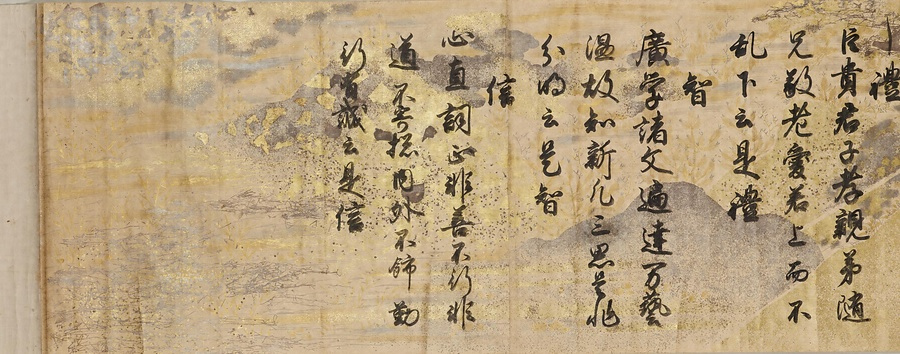 禮
臣貴君子孝親弟隨
兄敬老愛若上而不
乱下云是禮
智
廣学諸文遍達万藝
温故知新凡三思是非
分明云是智
信
心直詞正非善不行非
道不 内外不飾勤
行皆誠云是信